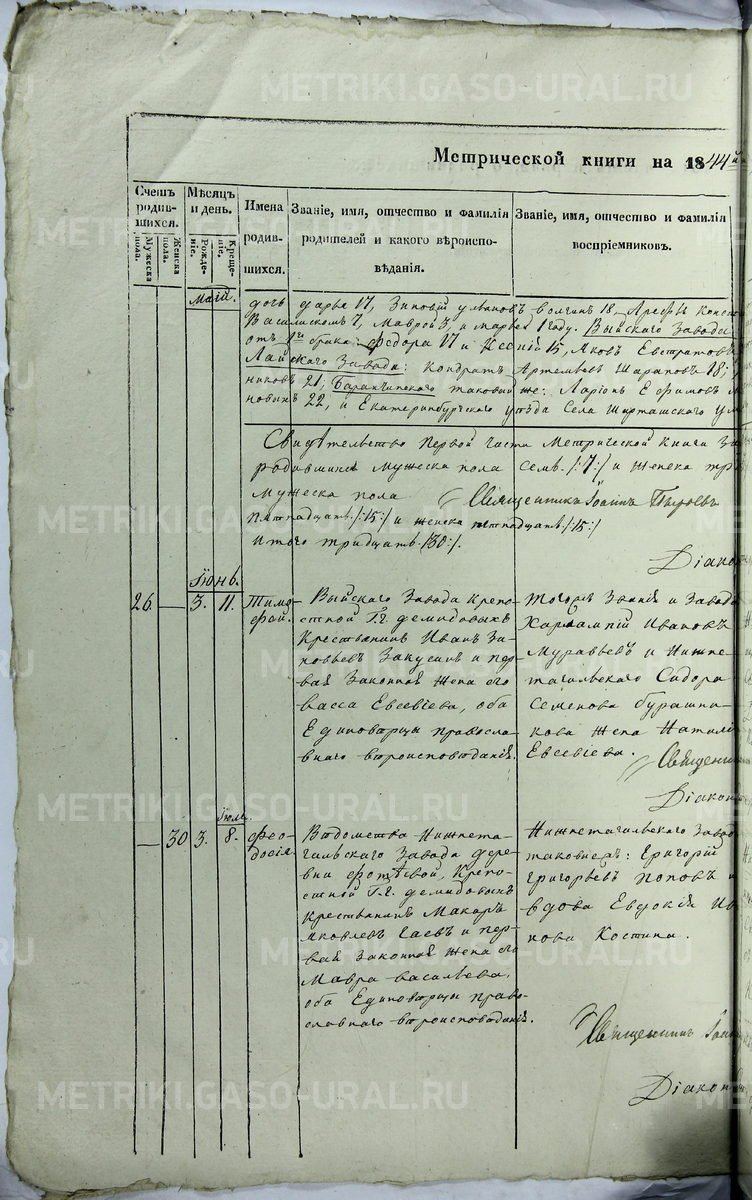 Метрической книги на 1844й
Счетъ родив-шихся.
Мужеска пола.
Женска пола.
Мѣсяцъ и день.
Рожде-ніе.
Креще-ніе.
Имена родив-шихся.
Званіе, имя, отчество и фамилія родителей и какого вѣроиспо-вѣданія.
Званіе, имя, отчество и фамилія воспріемниковъ.
Маій.
дочь Дарья 17, Зиновій Ульановъ 18
7, Маврой 3, и Марьей 1 году. Выйскаго Завода
отъ 1го брака: Федора 17 и 15, Яковъ Евстратовъ
Лайскаго Завода: Кондратъ Артемьевъ Шараповъ 18;
никовъ 21; Баранчинскаго таковой же: Ларіонъ Ефимовъ
новыхъ 22, и Екатеринбургскаго уѣзда Села Шарташскаго
Свидѣтельство первой части Метрической книги
родившихся мужеска пола семь /:7:/ и женска
мужеска пола Священникъ Іоаннъ Пыръевъ
пятнадцать /:15:/ и женска пятнадцать /:15:/
Итого тридцать /30/.
Діакон
Іюнь.
26. — 3. 11. Тимо-
фей.
Выйскаго Завода Крепо-
стной Г.г. Демидовыхъ
Крестьянинъ Иванъ За-
новьевъ Закусинъ и пер-
вая Законная жена его
Васса Евсевіева, оба
Единоверцы правосла-
внаго вѣроисповѣданія.
Тогоже Званія и Завода
Харлампій Ивановъ
Муравьевъ и Нижне-
тагильскаго Сидора
Семенова Бурашни-
кова жена Наталія
Евсевіева.
Священни
Діакон
Іюль.
— 30 3. 8. Фео-
досія.
Вѣдомства Нижнета-
гильскаго Завода дере-
вни Фотѣевой, Крепо-
стной Г.г. Демидовыхъ
Крестьянинъ Макаръ
Яковлевъ Гаевъ и пер-
вая Законная жена его
Мавра Васильева,
оба Единоверцы право-
славнаго вѣроисповѣданія.
Нижнетагильскаго Завода
таковыежъ: Григорій
Григорьевъ Поповъ и
вдова Евдокія Ив
нова Костина.
Священникъ Іоан
Діакон
METRIKI.GASO-URAL.RU